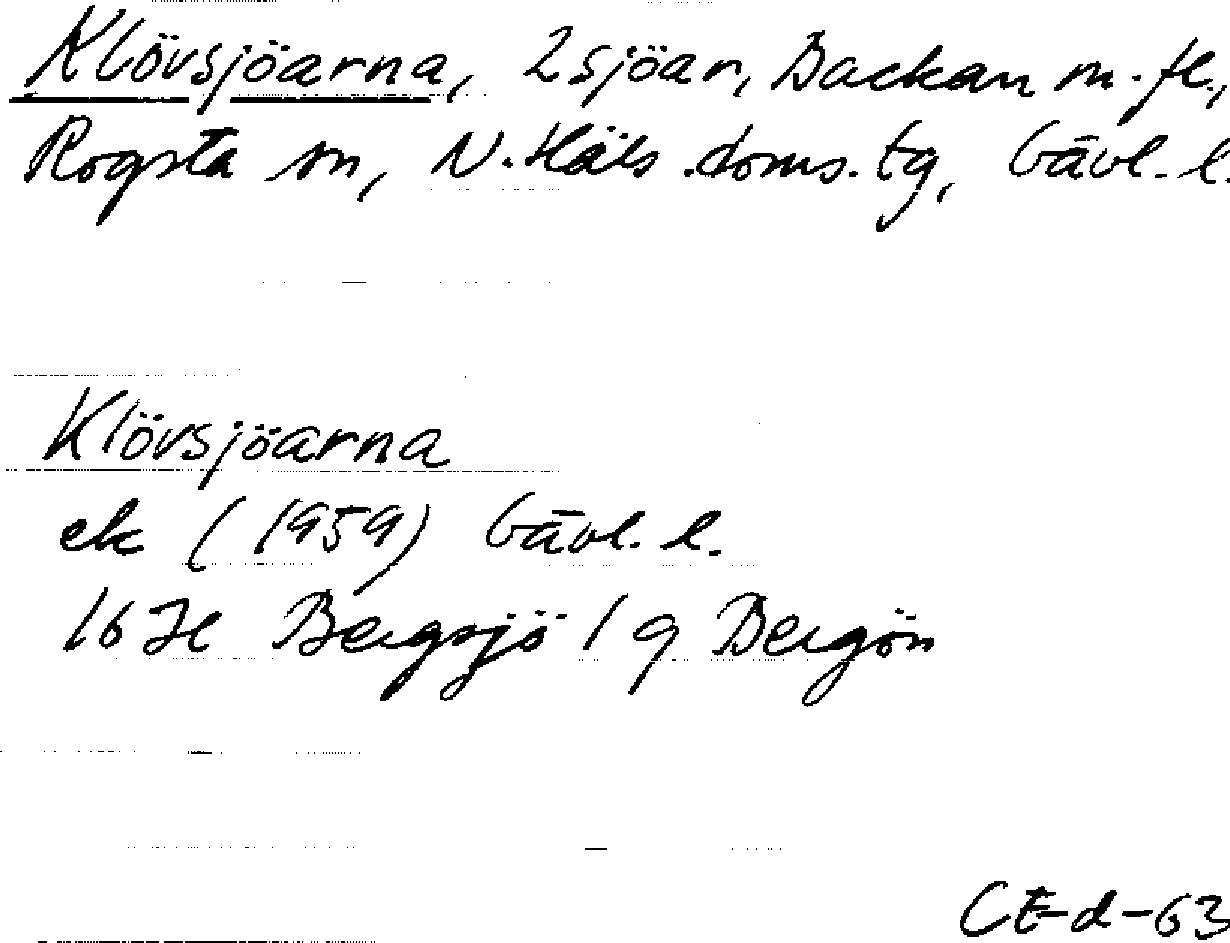 Klövsjöarna, 2 sjöar, Backan m. fl.,
Rogsta sn, N. Häls. doms. tg, Gävl. l.
Klövsjöarna
ek (1959) Gävl. l.
16 H Bergsjö 1 g Bergön
CE-d-63